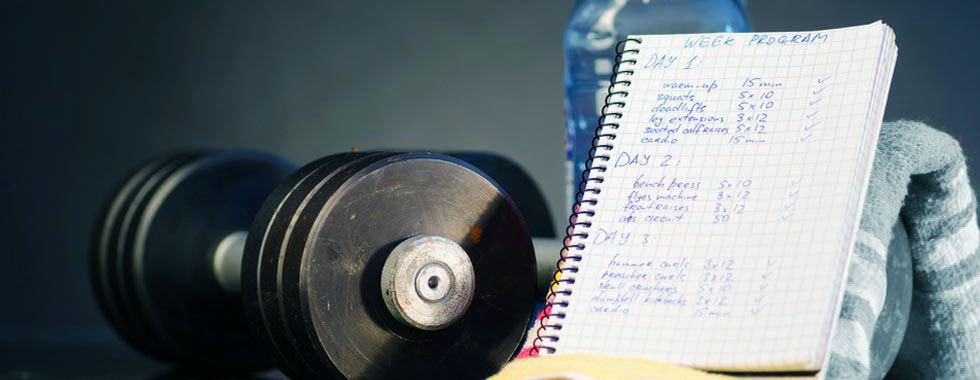 WEEK PROGRAM
DAY 1:
warm-up 15 min ✓
squats 5x10 ✓
deadlifts 5x10 ✓
leg extensions 3x12 ✓
seated calf raises 5x12 ✓
cardio 15 min ✓
DAY 2:
bench press 5x10 ✓
flyes machine 3x12 ✓
front raises 3x12 ✓
abs circuit 50 ✓
DAY 3:
hammer curls 3x12 ✓
preacher curls 3x12 ✓
skull crushers 5x10 ✓
dumbbell 3x12 ✓
cardio 15 min ✓